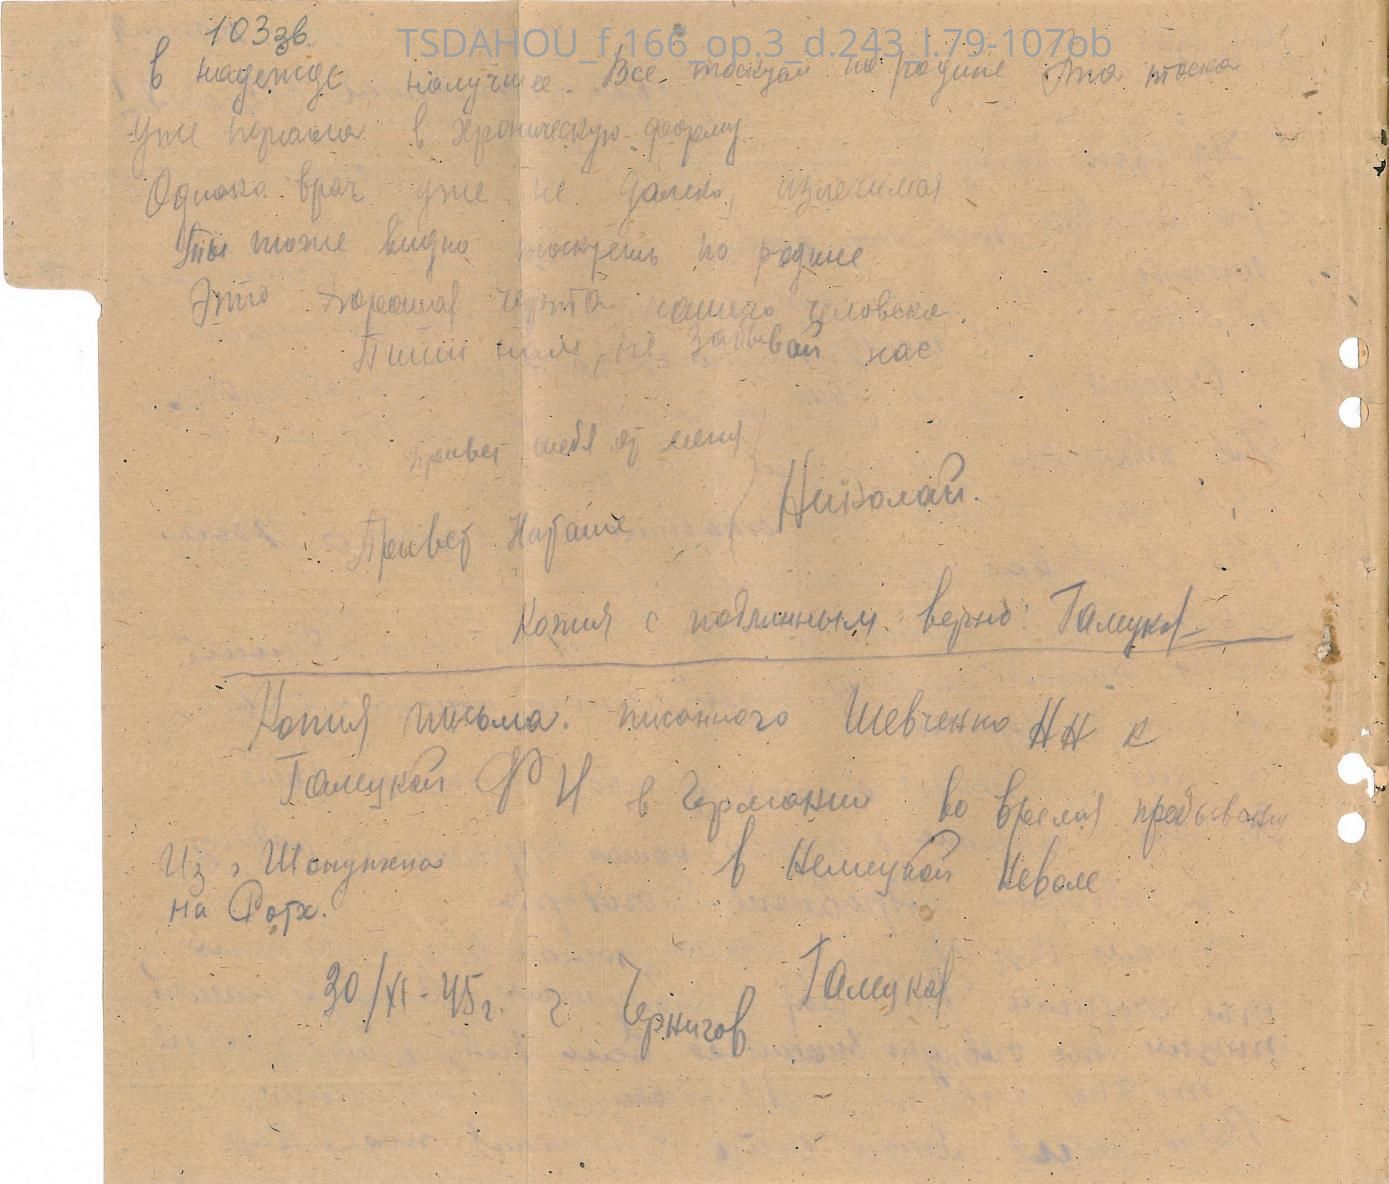 103зв.
TSDAHOU_f.166_op.3_d.243_l.79-107ob
в надежде на лучшее. Все тоскуем по родине Эта тоска
уже перешла в хроническую форму.
Однако врач уже не далеко, излечимая
Ты тоже видно тоскуешь по родине
Это хорошая черта нашего человека.
Пиши нам, не забывай нас
привет тебя от меня
Николай.
Привет Наташе
Копия с подлинным верно: Галицкая
Копия письма. писанного Шевченко НН к
Галицкой Ф И в Германии во время пребывания
Из г в Немецкой Неволе
на
30/XI-45г. г. Чернигов Галицкая